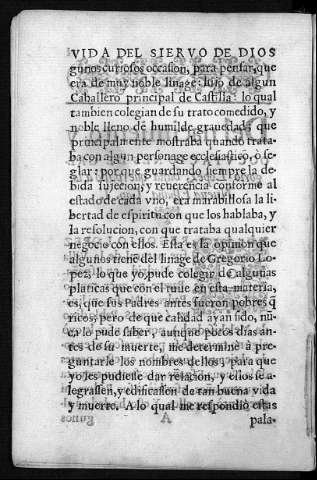 VIDA DEL SIERVO DE DIOS
gunos curiosos occasion, para pensar, que
era de muy noble linage: hijo de algun
Caballero principal de Castilla: lo qual
tambien colegian de su trato comedido, y
noble lleno de humilde grauedad, que
principalmente mostraba quando trata-
ba con algun personage ecclesiastico, ò se-
glar: porque guardando siempre la de-
bida sujecion, y reuerencia conforme al
estado de cada vno, era marabillosa la li-
bertad de espiritu con que los hablaba, y
la resolucion, con que trataba qualquier
negocio con ellos. Esta es la opinion que
algunos tiene del linage de Gregorio Lo-
pez, lo que yo pude colegir de algunas
platicas que con el tuue en esta materia,
es, que sus Padres antes fueron pobres q̃
ricos; pero de que calidad ayan sido, nũ-
ca lo pude saber, aunque pocos dias an-
tes de su muerte, me determinè à pre-
guntarle los nombres dellos, para que
yo les pudiese dar relacion, y ellos se a-
legrassen, y edificassen de tan buena vida
y muerte. A lo qual me respondiò estas
A pala-